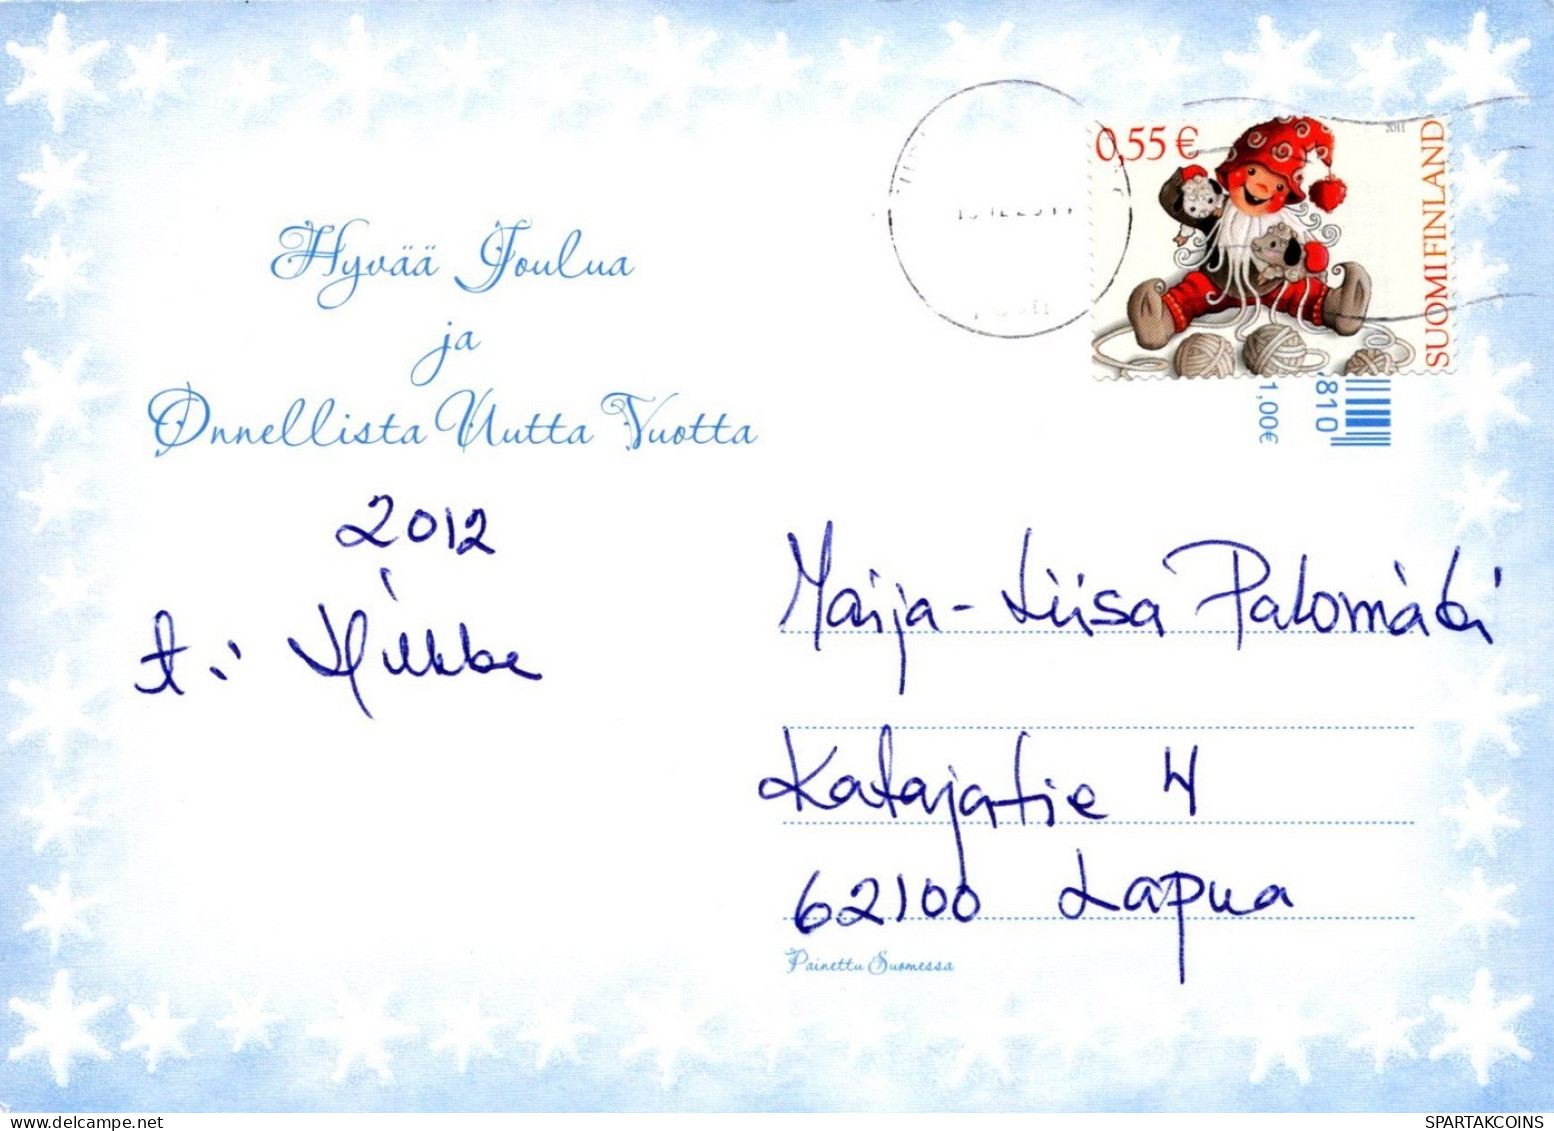 Hyvää Joulua
ja
Onnellista Uutta Vuotta
2012
t.: Hilkka
0,55 €
2011
SUOMI FINLAND
810
1,00€
Maija-Liisa Palomäki
Katajatie 4
62100 Lapua
Painettu Suomessa
SPARTAKCOINS